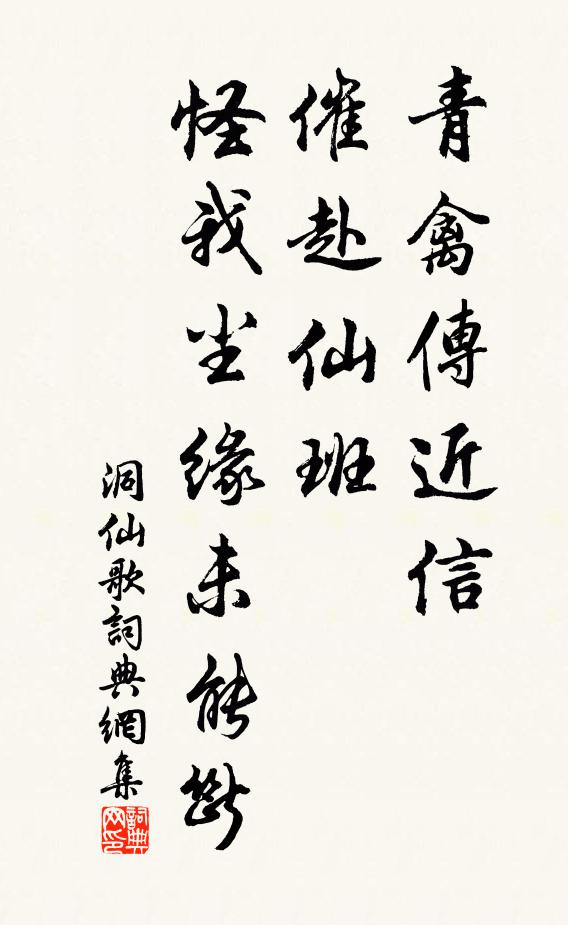 青禽傳近信
催赴仙班
怪我尘緣未能斷
洞仙歌詞典網集
詞典网印